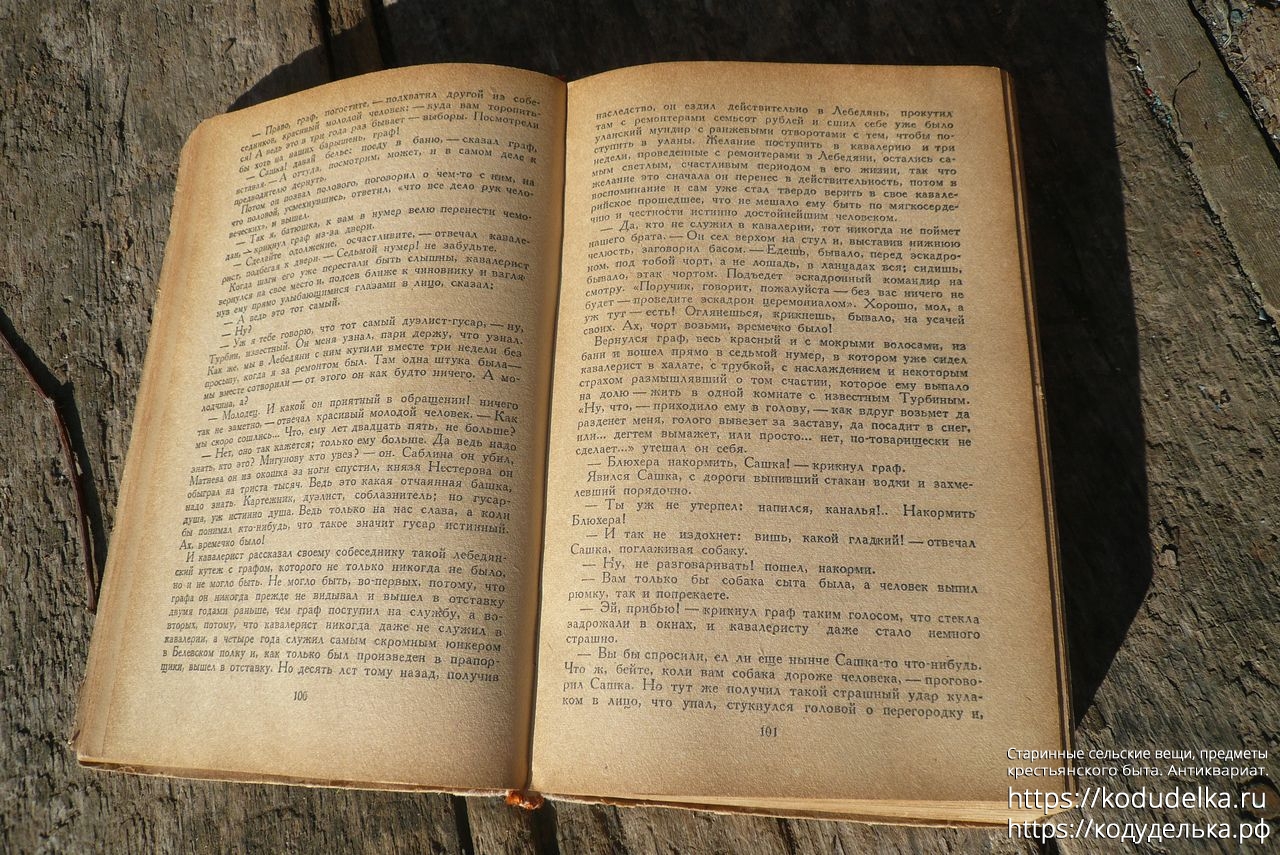 — Право, граф, погостите, — подхватил другой из собе-
седников, красивый молодой человек: — куда вам торопить-
ся! А ведь это в три года раз бывает — выборы. Посмотрели
бы хоть на наших барышень, граф!
— Сашка! давай белье: поеду в баню, — сказал граф,
вставая. — А оттуда, посмотрим, может, и в самом деле к
предводителю дернуть.
Потом он позвал полового, поговорил о чем-то с ним, на
что половой, усмехнувшись, ответил, «что все дело рук чело-
веческих», и вышел.
— Так я, батюшка, к вам в нумер велю перенести чемо-
дан, — крикнул граф из-за двери.
— Сделайте одолжение, осчастливите, — отвечал кавале-
рист, подбегая к двери. — Седьмой нумер! не забудьте.
Когда шаги его уже перестали быть слышны, кавалерист
вернулся на свое место и, подсев ближе к чиновнику и взгля-
нув ему прямо улыбающимися глазами в лицо, сказал:
— А ведь это тот самый.
— Ну?
— Уж я тебе говорю, что тот самый дуэлист-гусар, — ну,
Турбин, известный. Он меня узнал, пари держу, что узнал.
Как же, мы в Лебедяни с ним кутили вместе три недели без
просыпу, когда я за ремонтом был. Там одна штука была —
мы вместе сотворили — от этого он как будто ничего. А мо-
лодчина, а?
— Молодец. И какой он приятный в обращении! ничего
так не заметно, — отвечал красивый молодой человек. — Как
мы скоро сошлись... Что, ему лет двадцать пять, не больше?
— Нет, оно так кажется; только ему больше. Да ведь надо
знать, кто это? Мигунову кто увез? — он. Саблина он убил,
Матнева он из окошка за ноги спустил, князя Нестерова он
обыграл на триста тысяч. Ведь это какая отчаянная башка,
надо знать. Картежник, дуэлист, соблазнитель; но гусар-
душа, уж истинно душа. Ведь только на нас слава, а коли
бы понимал кто-нибудь, что такое значит гусар истинный.
Ах, времечко было!
И кавалерист рассказал своему собеседнику такой лебедян-
ский кутеж с графом, которого не только никогда не было,
но и не могло быть. Не могло быть, во-первых, потому, что
графа он никогда прежде не видывал и вышел в отставку
двумя годами раньше, чем граф поступил на службу, а во-
вторых, потому, что кавалерист никогда даже не служил в
кавалерии, а четыре года служил самым скромным юнкером
в Белевском полку и, как только был произведен в прапор-
щики, вышел в отставку. Но десять лет тому назад, получив
100
наследство, он ездил действительно в Лебедянь, прокутил
там с ремонтерами семьсот рублей и сшил себе уже было
уланский мундир с ранжевыми отворотами с тем, чтобы по-
ступить в уланы. Желание поступить в кавалерию и три
недели, проведенные с ремонтерами в Лебедяни, остались са-
мым светлым, счастливым периодом в его жизни, так что
желание это сначала он перенес в действительность, потом в
воспоминание и сам уже стал твердо верить в свое кавале-
рийское прошедшее, что не мешало ему быть по мягкосерде-
чию и честности истинно достойнейшим человеком.
— Да, кто не служил в кавалерии, тот никогда не поймет
нашего брата. — Он сел верхом на стул и, выставив нижнюю
челюсть, заговорил басом. — Едешь, бывало, перед эскадро-
ном, под тобой чорт, а не лошадь, в ланцадах вся; сидишь,
бывало, этак чортом. Подъедет эскадронный командир на
смотру. «Поручик, говорит, пожалуйста — без вас ничего не
будет — проведите эскадрон церемониалом». Хорошо, мол, а
уж тут — есть! Оглянешься, крикнешь, бывало, на усачей
своих. Ах, чорт возьми, времечко было!
Вернулся граф, весь красный и с мокрыми волосами, из
бани и вошел прямо в седьмой нумер, в котором уже сидел
кавалерист в халате, с трубкой, с наслаждением и некоторым
страхом размышлявший о том счастии, которое ему выпало
на долю — жить в одной комнате с известным Турбиным.
«Ну, что, — приходило ему в голову, — как вдруг возьмет да
разденет меня, голого вывезет за заставу, да посадит в снег,
или... дегтем вымажет, или просто... нет, по-товарищески не
сделает...» утешал он себя.
— Блюхера накормить, Сашка! — крикнул граф.
Явился Сашка, с дороги выпивший стакан водки и захме-
левший порядочно.
— Ты уж не утерпел: напился, каналья!.. Накормить
Блюхера!
— И так не издохнет: вишь, какой гладкий! — отвечал
Сашка, поглаживая собаку.
— Ну, не разговаривать! пошел, накорми.
— Вам только бы собака сыта была, а человек выпил
рюмку, так и попрекаете.
— Эй, прибью! — крикнул граф таким голосом, что стекла
задрожали в окнах, и кавалеристу даже стало немного
страшно.
— Вы бы спросили, ел ли еще нынче Сашка-то что-нибудь.
Что ж, бейте, коли вам собака дороже человека, — прогово-
рил Сашка. Но тут же получил такой страшный удар кула-
ком в лицо, что упал, стукнулся головой о перегородку и,
101
Старинные сельские вещи, предметы
крестьянского быта. Антиквариат.
https://kodudelka.ru
https://кодуделька.рф